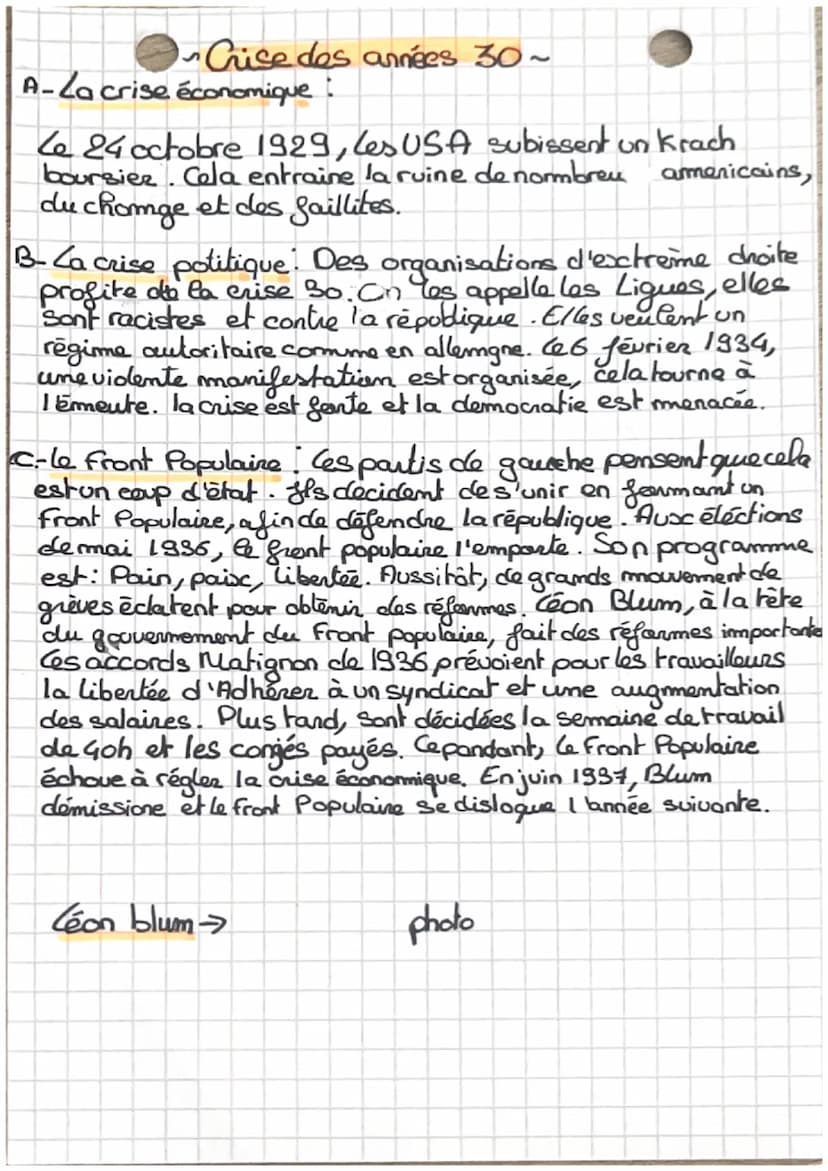 ~ Crise des années 30 ~
A- La crise économique :
Le 24 octobre 1929, les USA subissent un Krach
boursier. Cela entraine la ruine de normbreu armericains,
du chomge et des faillites.
B- La crise politique : Des organisations d'exctreime droite
profite de la crise 30. On les appelle les Ligues, elles
sont racistes et contre la républigue. Elles veulent un
régime autoritaire comme en allemgne. Le 6 février 1934,
une violente manifestation est organisée, cela tourne à
l'Émeute. la crise est forte et la democratie est menacée.
C- le Front Populaire : Les partis de gauche pensent que cela
est un coup d'état. Ils decident de s'unir en formant un
Front Populaire, afin de défendre la république. Aux éléctions
de mai 1936, le front populaire l'emporte. Son programme
est : Pain, paix, libertée. Aussitôt, de grands mouvement de
grèves éclatent pour obtenir des réformes. Léon Blum, à la tête
du gouvernement du Front populaire, fait des réformes importante
Les accords Matignon de 1936 prévoient pour les travailleurs
la libertée d'Adhérer à un syndicat et une augmentation
des salaires. Plus tard, sont décidées la semaine de travail
de 40h et les congés payés. Cependant, le Front Populaire
échoue à régler la crise économique. En juin 1937, Blum
démissione et le front Populaire se disloque l'année suivante.
Léon blum → photo